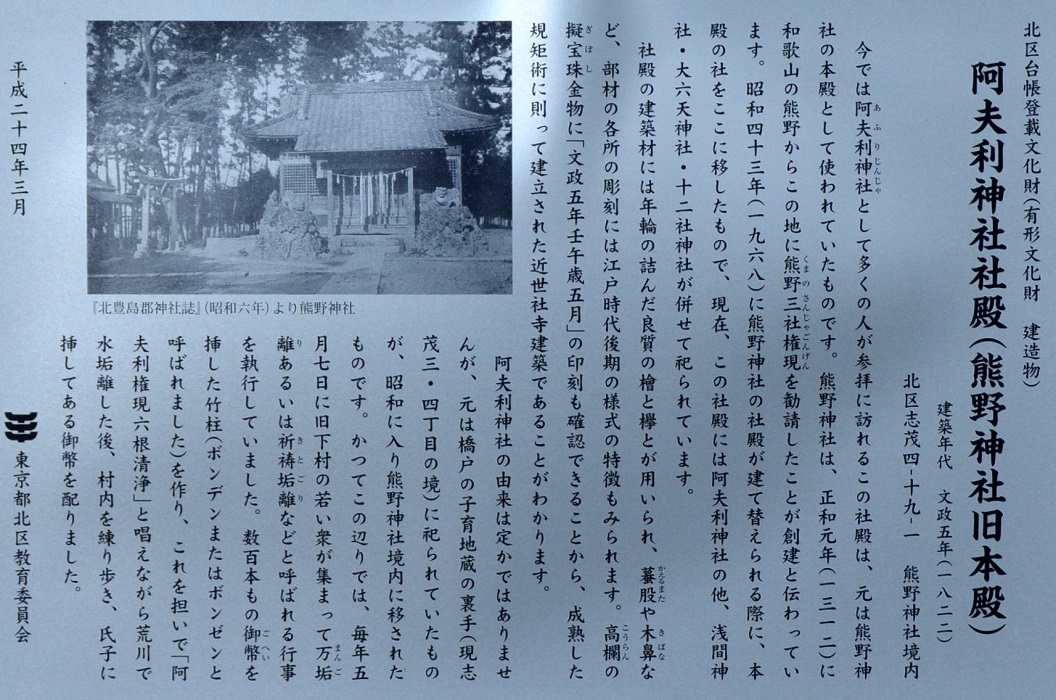 北区台帳登載文化財(有形文化財　建造物)
阿夫利神社社殿(熊野神社旧本殿)
建築年代　文政五年(一八二二)
北区志茂四-十九-一　熊野神社境内
今では阿夫利神社として多くの人が参拝に訪れるこの社殿は、元は熊野神
社の本殿として使われていたものです。熊野神社は、正和元年(一三一二)に
和歌山の熊野からこの地に熊野三社権現を勧請したことが創建と伝わってい
ます。昭和四十三年(一九六八)に熊野神社の社殿が建て替えられる際に、本
殿の社をここに移したもので、現在、この社殿には阿夫利神社の他、浅間神
社・大六天神社・十二社神社が併せて祀られています。
社殿の建築材には年輪の詰んだ良質の檜と欅とが用いられ、蟇股や木鼻な
ど、部材の各所の彫刻には江戸時代後期の様式の特徴もみられます。高欄の
擬宝珠金物に「文政五年壬午歳五月」の印刻も確認できることから、成熟した
規矩術に則って建立された近世社寺建築であることがわかります。
阿夫利神社の由来は定かではありませ
んが、元は橋戸の子育地蔵の裏手(現志
茂三・四丁目の境)に祀られていたもの
が、昭和に入り熊野神社境内に移された
ものです。かつてこの辺りでは、毎年五
月七日に旧下村の若い衆が集まって万垢
離あるいは祈祷垢離などと呼ばれる行事
を執行していました。数百本もの御幣を
挿した竹柱(ボンデンまたはボンゼンと
呼ばれました)を作り、これを担いで「阿
夫利権現六根清浄」と唱えながら荒川で
水垢離した後、村内を練り歩き、氏子に
挿してある御幣を配りました。
『北豊島郡神社誌』(昭和六年)より熊野神社
平成二十四年三月
東京都北区教育委員会